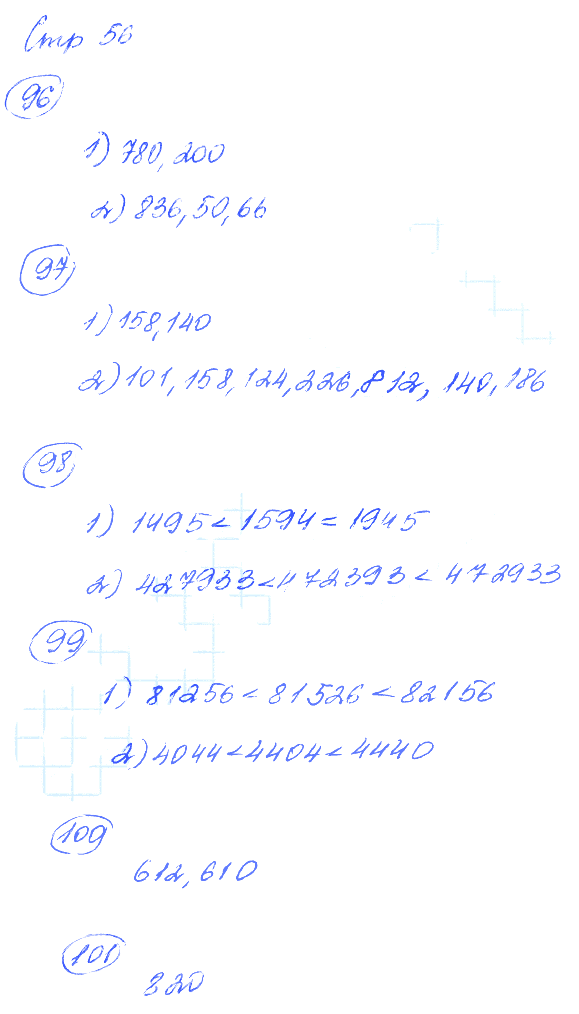 Стр 50
96
1) 780, 200
2) 836, 50, 66
97
1) 158, 140
2) 101, 158, 124, 226, 812, 140, 186
98
1) 1495 < 1594 = 1945
2) 427933 < 472393 < 472933
99
1) 81256 < 81526 < 82156
2) 4044 < 4404 < 4440
109
612, 610
101
820